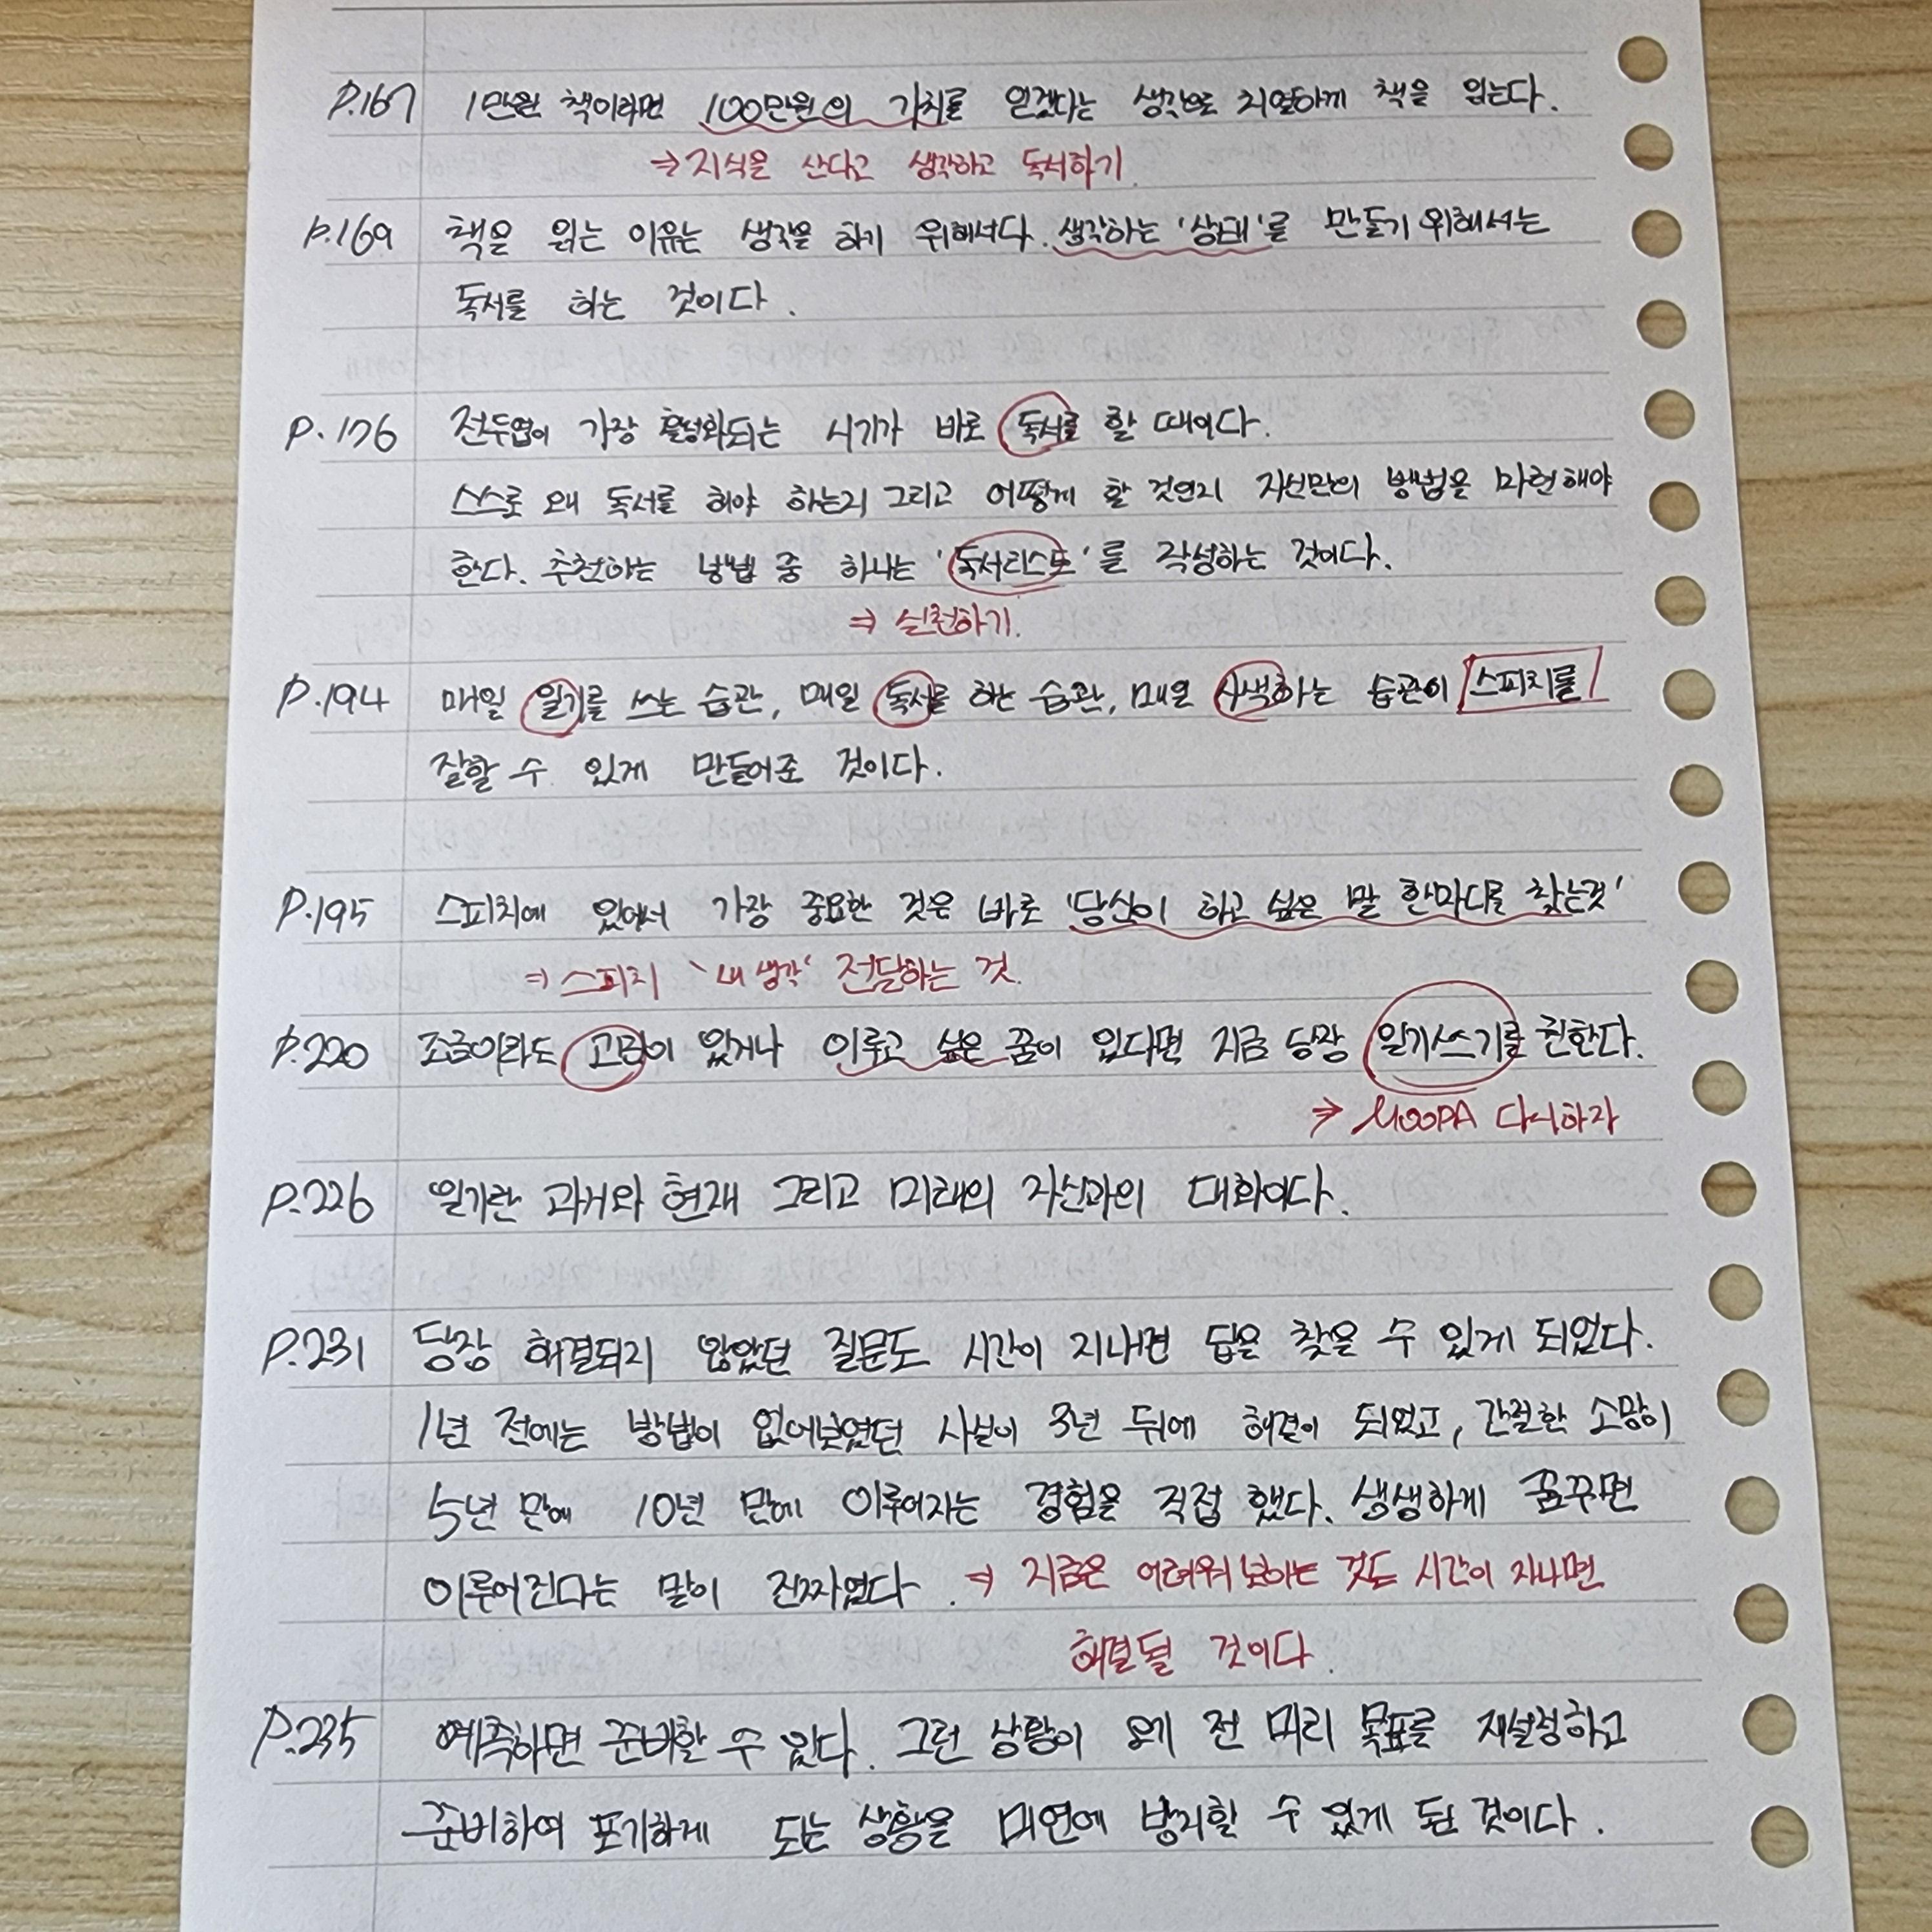 P.167 1만원 책이라면 100만원의 가치를 얻겠다는 생각으로 치열하게 책을 읽는다.
⇒ 지식을 산다고 생각하고 독서하기.
P.169 책을 읽는 이유는 생각을 하기 위해서다. 생각하는 '상태'를 만들기 위해서는
독서를 하는 것이다.
P.176 전두엽이 가장 활성화되는 시기가 바로 독서를 할 때이다.
스스로 왜 독서를 해야 하는지 그리고 어떻게 할 것인지 자신만의 방법을 마련해야
한다. 추천하는 방법 중 하나는 '독서리스트'를 작성하는 것이다.
⇒ 실천하기.
P.194 매일 일기를 쓰는 습관, 매일 독서를 하는 습관, 매일 사색하는 습관이 스피치를
잘할 수 있게 만들어준 것이다.
P.195 스피치에 있어서 가장 중요한 것은 바로 '당신이 하고 싶은 말 한마디를 찾는것'
⇒ 스피치 '내 생각' 전달하는 것.
P.220 조금이라도 고민이 있거나 이루고 싶은 꿈이 있다면 지금 당장 일기쓰기를 권한다.
⇒ MOOPA 다시하자
P.226 일기란 과거와 현재 그리고 미래의 자신과의 대화이다.
P.231 당장 해결되지 않았던 질문도 시간이 지나면 답을 찾을 수 있게 되었다.
1년 전에는 방법이 없어보였던 사실이 3년 뒤에 해결이 되었고, 간절한 소망이
5년 만에 10년 만에 이루어지는 경험을 직접 했다. 생생하게 꿈꾸면
이루어진다는 말이 진짜였다. ⇒ 지금은 어려워 보이는 것도 시간이 지나면
해결될 것이다.
P.235 예측하면 준비할 수 있다. 그런 상황이 오기 전 미리 목표를 재설정하고
준비하여 포기하게 되는 상황을 미연에 방지할 수 있게 된 것이다.